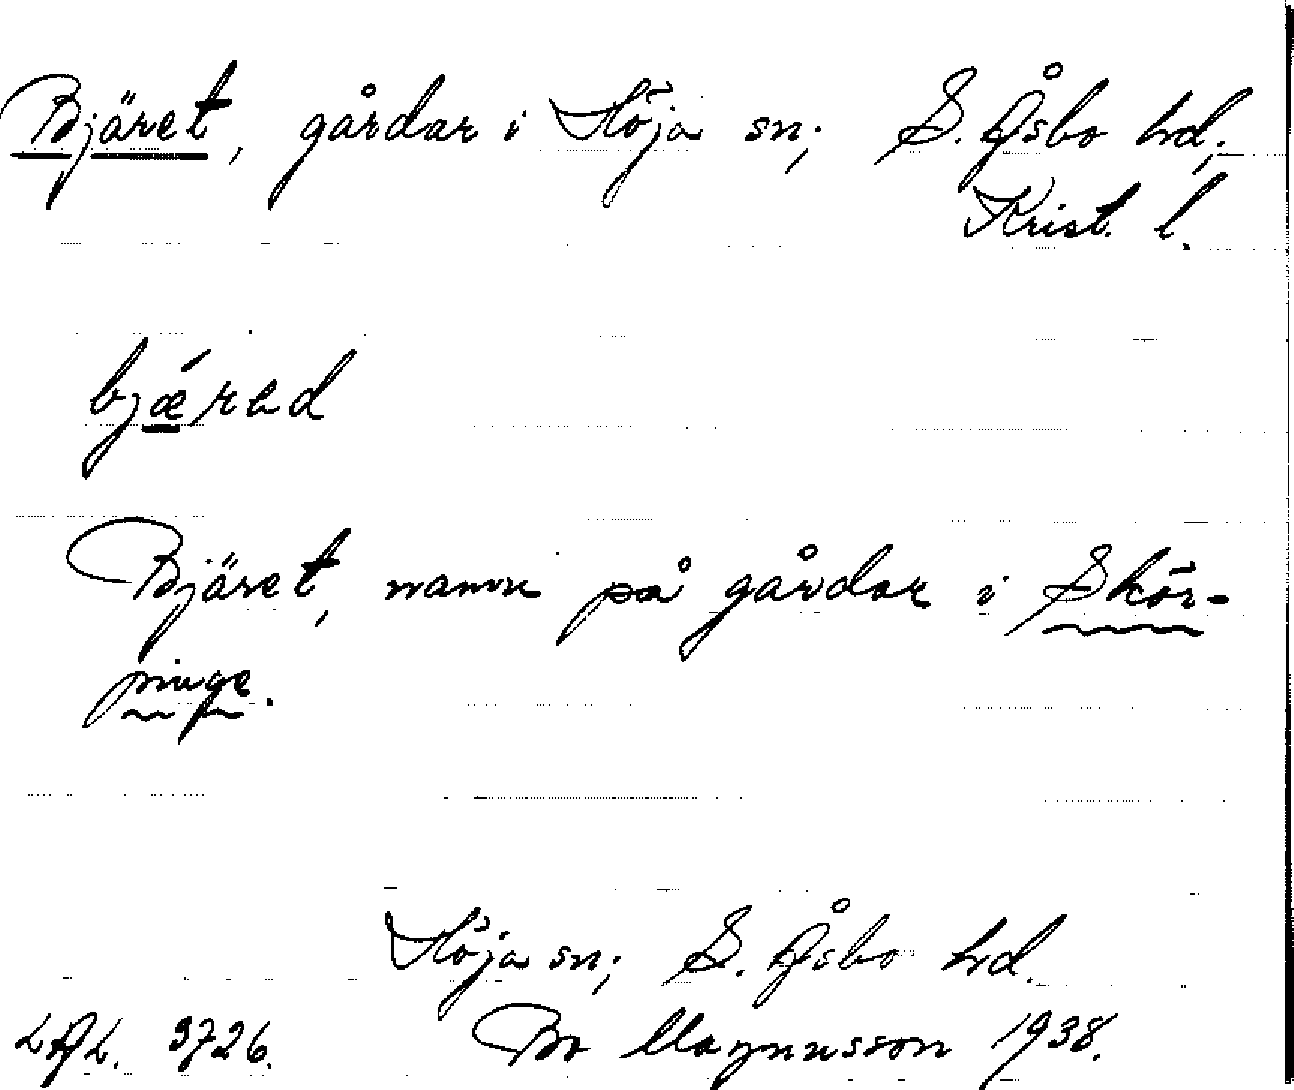 Bjäret, gårdar i Höja sn; S. Åsbo hd;
Krist. l.
bjǽrəd
Bjäret, namn på gårdar i Skör-
pinge.
Höja sn; S. Åsbo hd.
LAL. 3726. Bo Magnusson 1938.